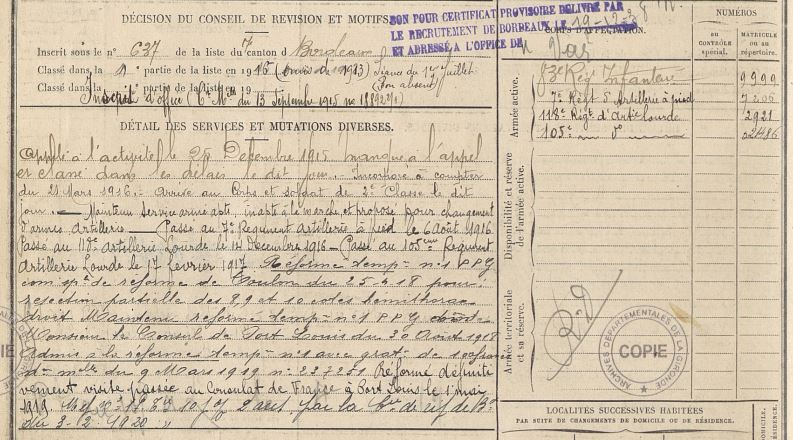 DÉCISION DU CONSEIL DE REVISION ET MOTIFS.
BON POUR CERTIFICAT PROVISOIRE DELIVRE PAR
LE RECRUTEMENT DE BORDEAUX LE 19-12-38
ET ADRESSE A L'OFFICE DE
Inscrit sous le n° 637 de la liste du 7 canton de Bordeaux
Classé dans la 1 partie de la liste en 1916
Classé dans la partie de la liste en 19 (Bon absent)
Inscrit d'office (C. Mlle du 13 Septembre 1915 no
DÉTAIL DES SERVICES ET MUTATIONS DIVERSES.
Appelé à l'activité le 25 Décembre 1915 manque à l'appel
et classé dans les délais le dit jour. Incorporé à compter
du 21 Mars 1916.- Arrivé au Corps et soldat de 2e Classe le dit
jour.- Maintenu Service armé apte, inapte à la marche, et proposé pour changement
d'armes Artillerie - Passé au 7e Régiment Artillerie à pied le 6 Août 1916.
Passé au 118e Artillerie Lourde le 14 Décembre 1916 - Passé au 105eme Régiment
Artillerie Lourde le 17 février 1917 Réformé temp. n° 1 P.P.G
com. sp. de réforme de Toulon du 25-4-18 pour
resection partielle des 8 9 et 10 cotes hemithorax
droit Maintenu réformé temp. n° 1 P.P.G
Monsieur le Consul de Port Louis du 30 Août 1918
Admis à la réforme temp. n° 1 avec grat. de
du 9 Mars 1919 n° Réformé définiti
vement visite passée au Consulat de France à Port Louis le 1er mai
1919.
du 3-12-1920
CORPS D'AFFECTATION.
NUMÉROS
au CONTRÔLE spécial.
MATRICULE ou au répertoire.
Armée active.
83e Rég. Infanterie 9999
7e Régt d'Artillerie à pied 7206
118e Régt d'Artie Lourde 2921
105e do
Disponibilité et réserve de l'armée active.
Armée territoriale et sa réserve.
R.D
ARCHIVES DÉPARTEMENTALES DE LA GIRONDE
COPIE
LOCALITÉS SUCCESSIVES HABITÉES
PAR SUITE DE CHANGEMENTS DE DOMICILE OU DE RÉSIDENCE.